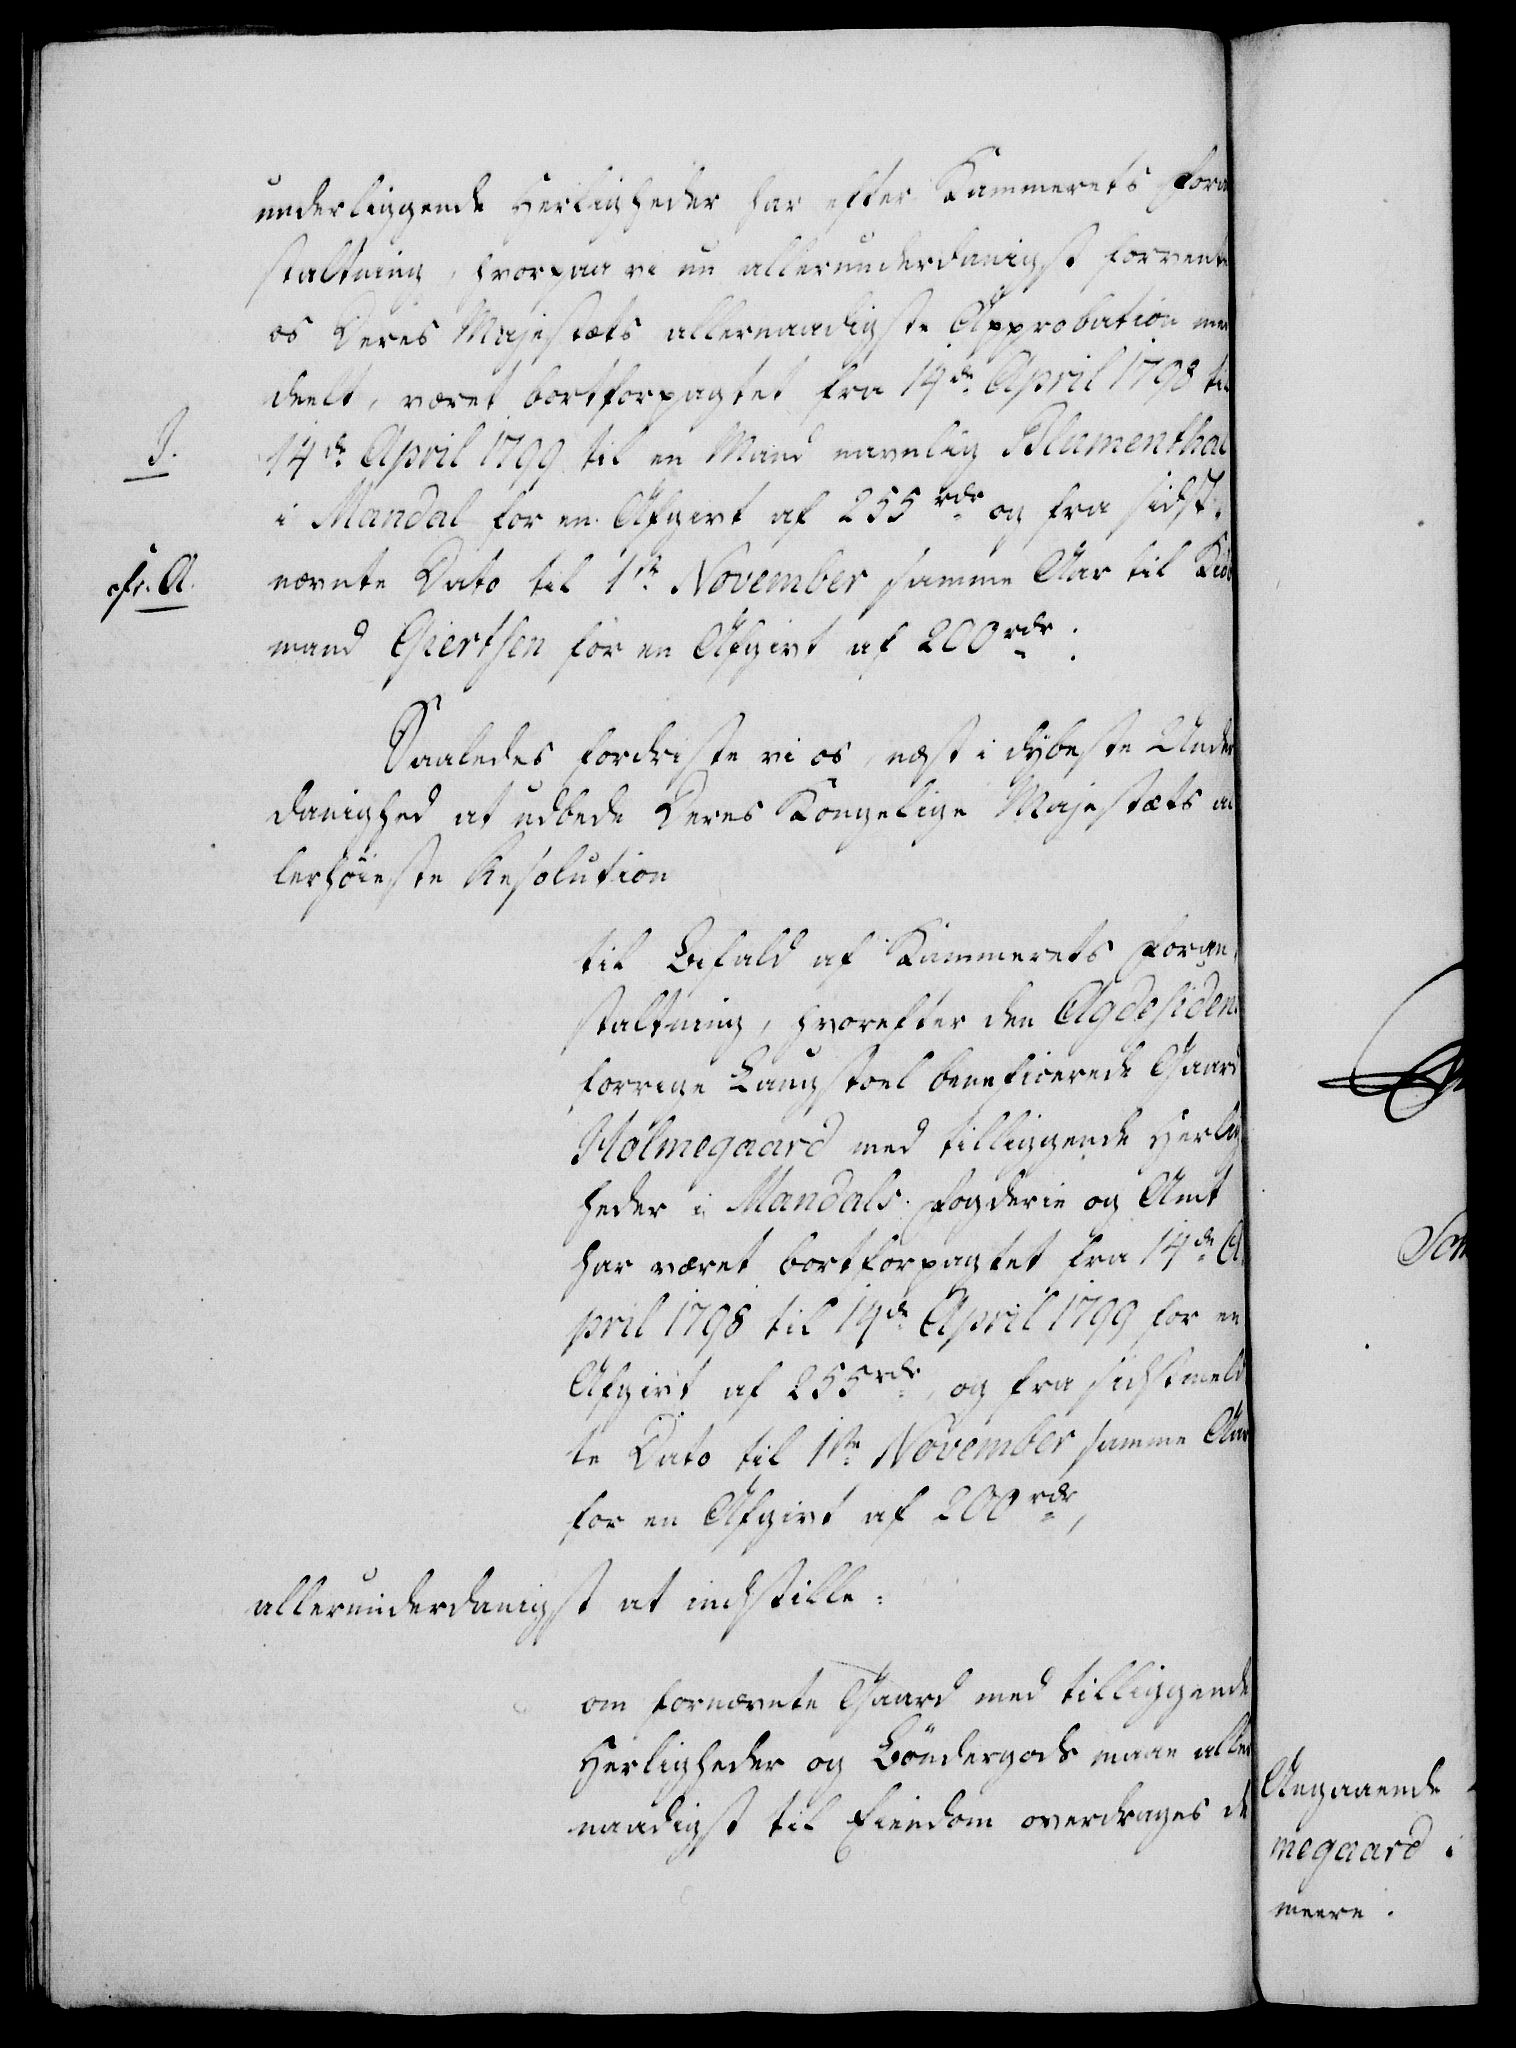 underliggende Herligheder har efter Kammerets Foran
staltning, hvorpaa vi nu allerunderdanigst forvente
os Deres Majestæts allernaadigste Approbation med
deelt, været bortforpagtet fra 14de April 1798 til
J.
14de April 1799 til en Mand navnlig Blumenthal
i Mandal for en Afgivt af 255 rdr og fra sidst-
cfr. A.
nævnte Dato til 1ste November samme Aar til Kiøb
mand Giertsen for en Afgivt af 200 rdr.
Saaledes fordriste vi os, næst i dybeste Under
danighed at udbede Deres Kongelige Majestæts al
lerhöieste Resolution
til Bifald af Kammerets Foran-
staltning, hvorefter den Agdesidens
forrige Laugstoel beneficerede Gaard
Holmegaard med tilliggende Herlig
heder i Mandals Fogderie og Amt
har været bortforpagtet fra 14de A
pril 1798 til 14de April 1799 for en
Afgivt af 255 rdr, og fra sidstmeld
te Dato til 1ste November samme Aar
for en Afgivt af 200 rdr,
allerunderdanigst at indstille:
om fornævnte Gaard med tilliggende
Herligheder og Böndergods maae aller
naadigst til Eiendom overdrages de
Som
Angaaende
megaard i
meere.